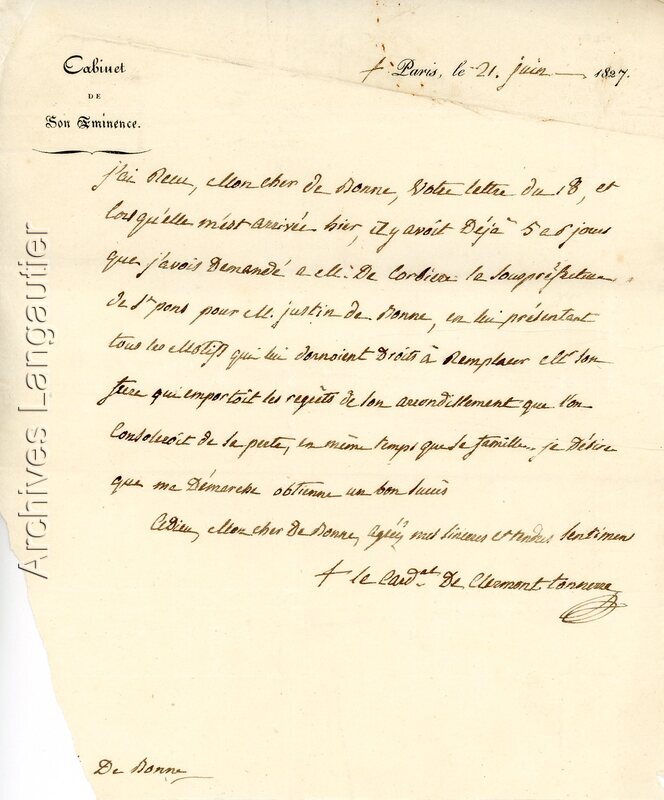 Cabinet
DE
Son Eminence.
† Paris, le 21. juin 1827.
j'ai Reçu, Mon cher de Bonne, Votre lettre du 18, et
lorsqu'elle m'est arrivée hier, il y avoit Déjà 5 a 6 jours
que j'avois Demandé a M. De Corbiere la Souspréfecture
de St pons pour M. justin de Bonne, en lui présentant
tous les Motifs qui lui donnoient Droits à Remplacer Mr son
frere qui emportoit les regrets de son arrondissement que l'on
Consoleroit de sa perte, en même temps que sa famille. je Désire
que ma Démarche obtienne un bon succès
Adieu, Mon cher De Bonne, agréez mes sinceres et tendres sentimens
† le Card.al De Clermont tonnerre
De Bonne
Archives Langautier